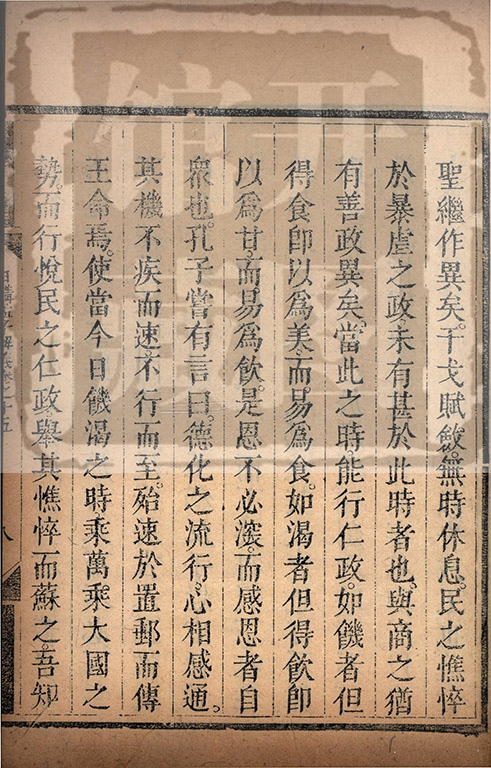 聖繼作異矣。干戈賦斂。無時休息。民之憔悴
於暴虐之政。未有甚於此時者也。與商之猶
有善政異矣。當此之時。能行仁政。如饑者但
得食。即以為美。而易為食。如渴者但得飲。即
以為甘。而易為飲。是恩不必深。而感恩者自
衆也。孔子嘗有言曰。德化之流行。心相感通。
其機不疾而速。不行而至。殆速於置郵而傳
王命焉。使當今日饑渴之時。乘萬乘大國之
勢。而行悅民之仁政。舉其憔悴而蘇之。吾知
日講四書解義卷之十五
八